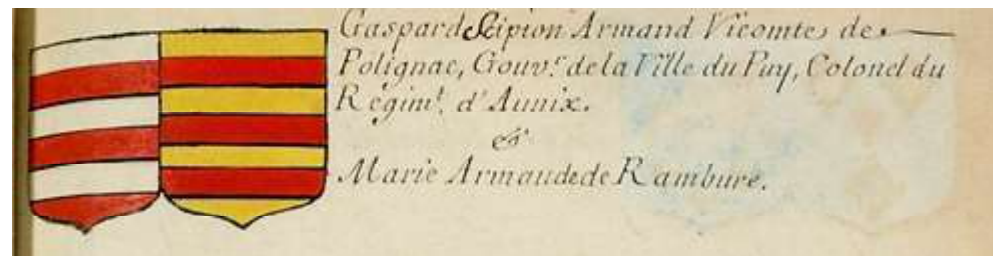 Gaspard Scipion Armand Vicomte de
Polignac, Gouv.r de la Ville du Puy, Colonel du
Régim.t d'Aunix.
&
Marie Armande de Rambure.